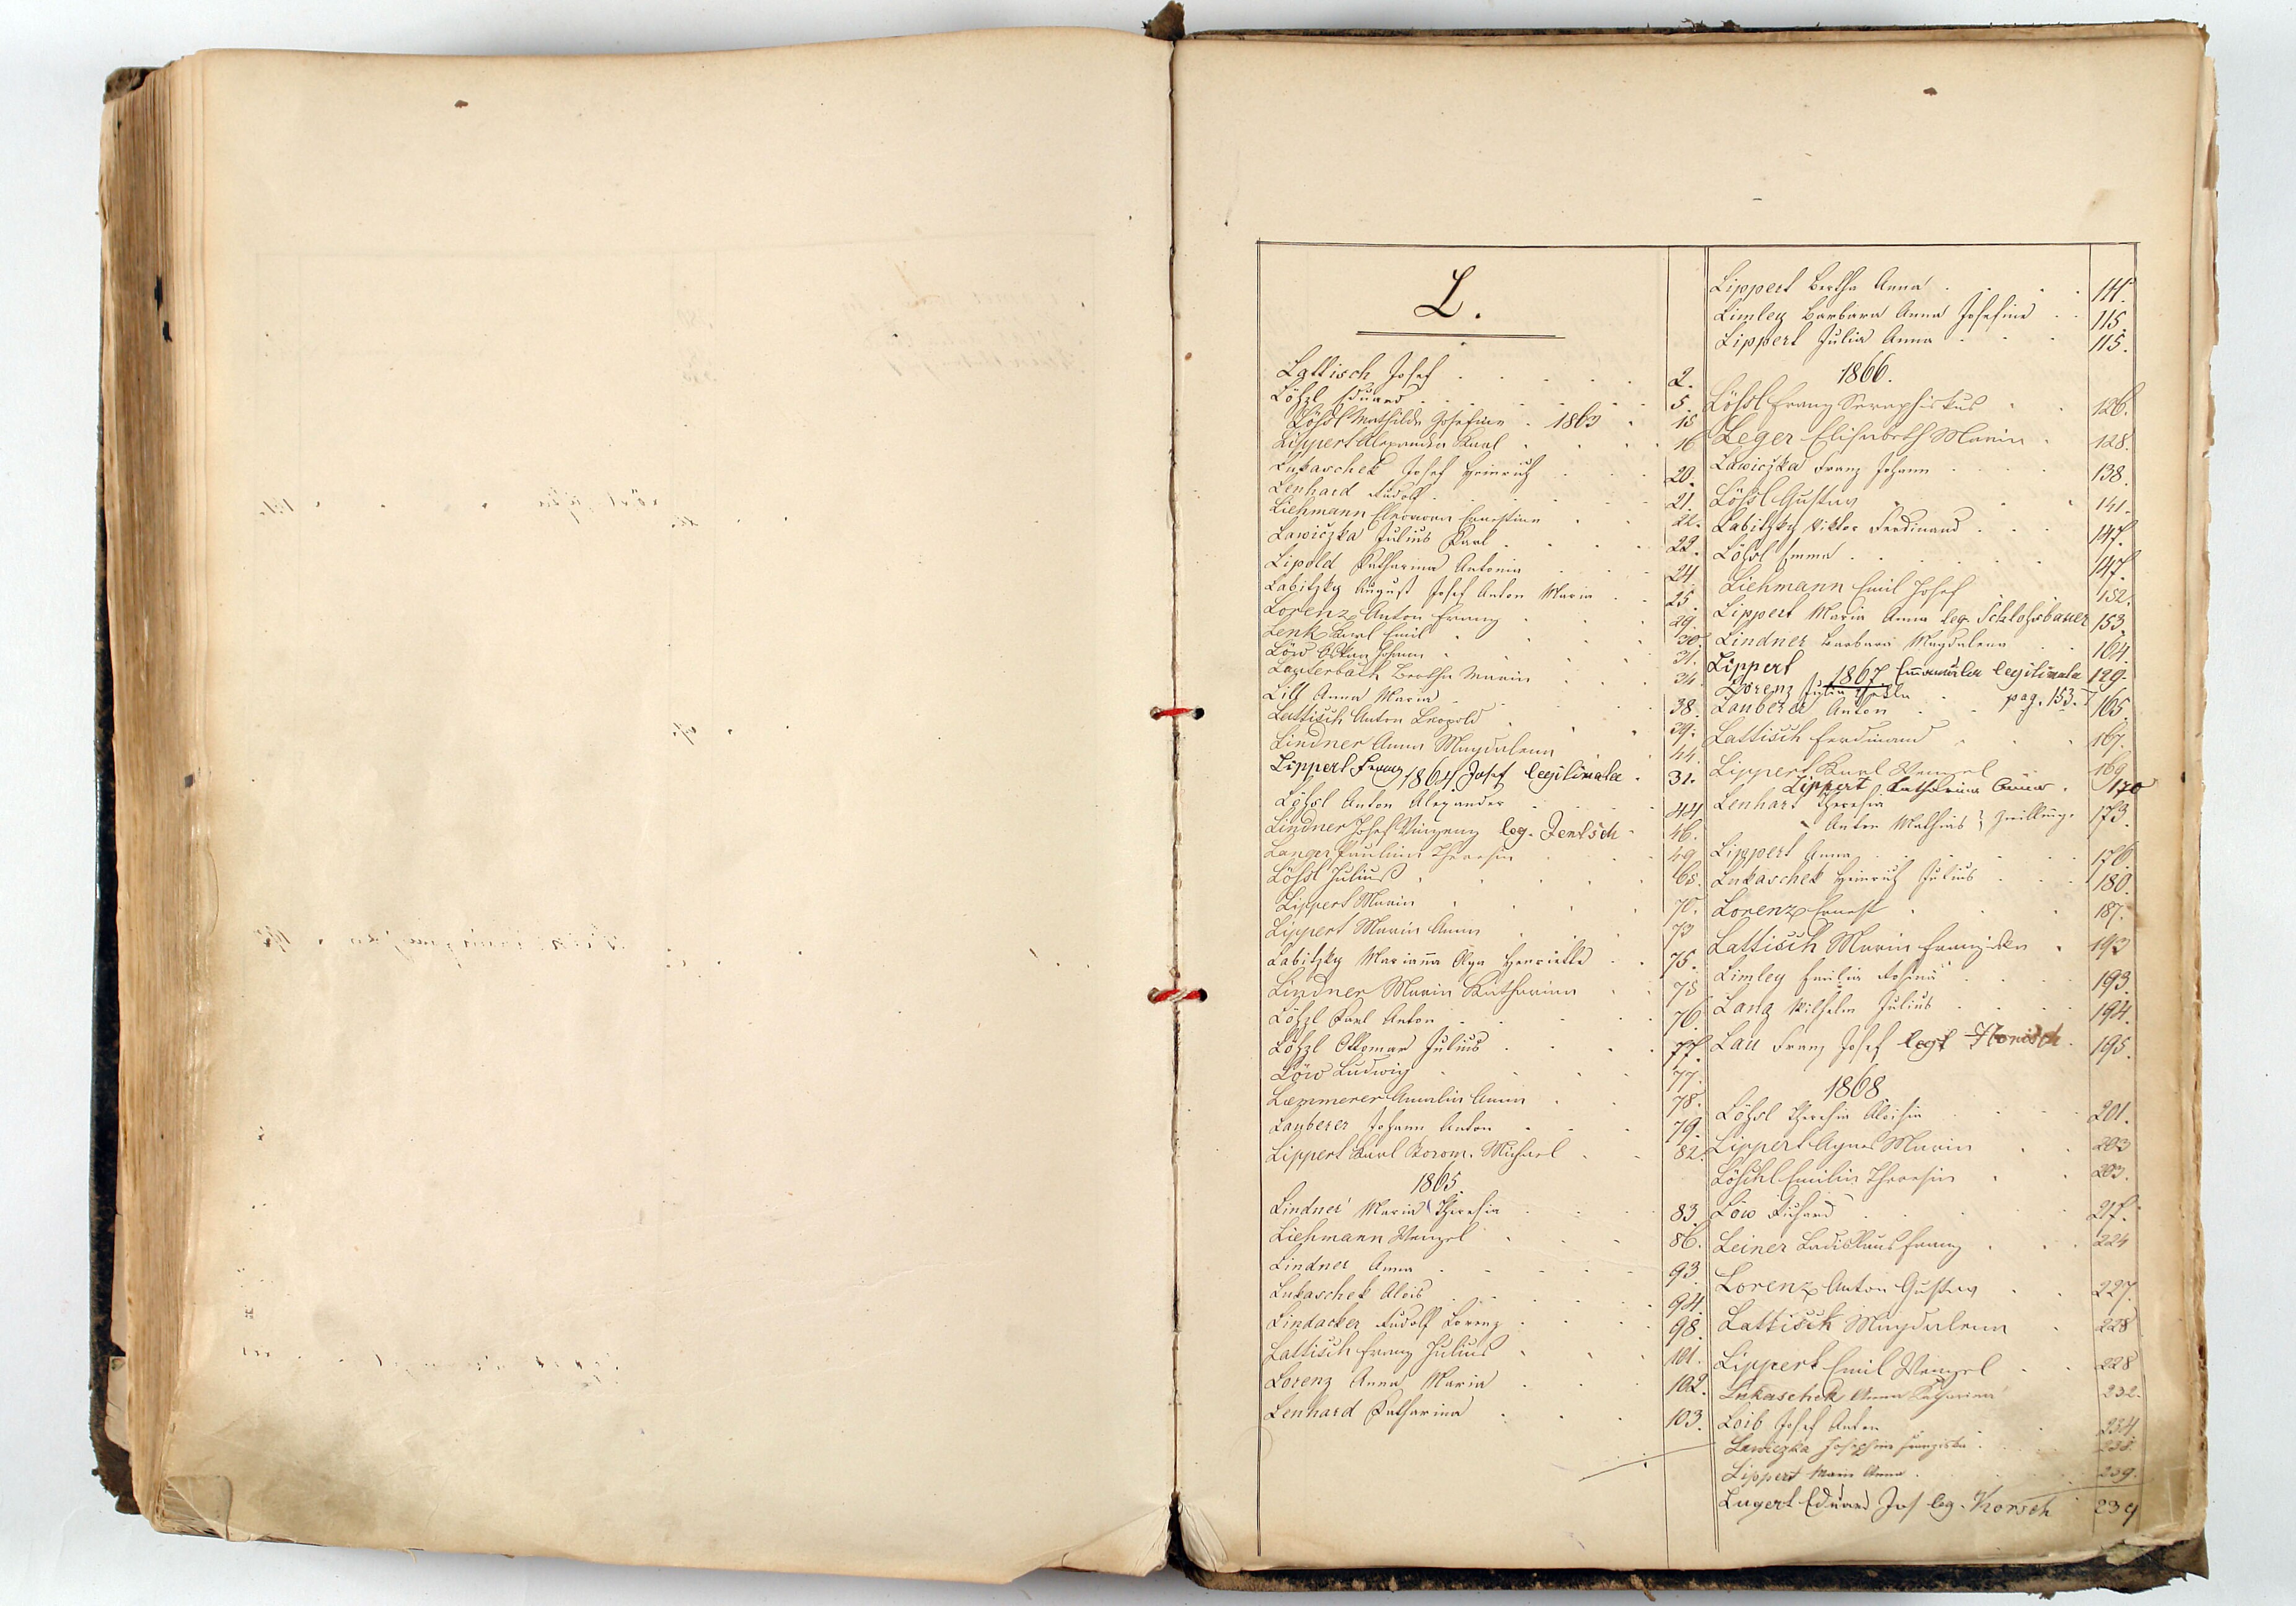 L.
Lattisch Josef 2.
Lößl Eduard 5.
Lößl Mathilde Josefine 1863 15
Lippert Alexander Karl 16
Lukaschek Josef Heinrich 20.
Lenhard Rudolf 21.
Liehmann Eleonora Ernestine 22.
Lawiczka Julius Karl 23.
Lipold Katharina Antonia 24.
Labitzky August Josef Anton Maria 25.
Lorenz Anton Franz 29.
Lenk Karl Emil 30.
Löw Oskar Johann 31.
Lauterbach Bertha Maria 34.
Lill Anna Maria 38.
Lattisch Anton Leopold 39.
Lindner Anna Magdalena 44.
Lippert Franz Josef legitimata 31.
1864
Lößl Anton Alexander 44
Lindner Josef Vinzenz leg. Jentsch 46.
Langer Paulina Theresia 49.
Lößl Julius 65.
Lippert Maria 70.
Lippert Maria Anna 73
Labitzky Marianna Olga Henriette 75.
Lindner Maria Katharina 75
Lößl Karl Anton 76.
Lößl Ottomar Julius 77.
Löw Ludwig 77.
Laemmerer Amalia Anna 78.
Lauberer Johann Anton 79.
Lippert Karl Borom. Michael 82.
1865
Lindner Maria Theresia 83.
Liehmann Wenzel 86.
Lindner Anna 93.
Lukaschek Alois 94.
Lindacker Rudolf Lorenz 98.
Lattisch Franz Julius 101.
Lorenz Anna Maria 102.
Lenhard Katharina 103.
Lippert Bertha Anna 111.
Limley Barbara Anna Josefine 115.
Lippert Julia Anna 115.
1866.
Lößl Franz Seraphikus 126.
Leger Elisabeth Maria 128.
Lawiczka Franz Johann 138.
Lößl Gustav 141.
Labitzky Viktor Ferdinand 147.
Lößl Emma 147.
Liehmann Emil Josef 152.
Lippert Maria Anna leg. Schloßbauer 153
Lindner Barbara Magdalena 164.
Lippert Emanuela legitimata 129.
1867
Lorenz Julia pag. 153.
Lauberer Anton 165.
Lattisch Ferdinand 167.
Lippert Karl Wenzel 169
Lippert Katharina Anna 170
Lenhart Theresia
Anton Mathias } Zwillinge 173.
Lippert Anna 176.
Lukaschek Heinrich Julius 180.
Lorenz Ernest 187.
Lattisch Maria Franziska 193
Limley Emilia Rosina 193.
Lang Wilhelm Julius 194.
Lau Franz Josef legt 195.
1868
Lößl Theresia Aloisia 201.
Lippert Agnes Maria 203
Löschl Emilia Theresia 203.
Löw Richard 217.
Leiner Ladislaus Franz 224
Lorenz Anton Gustav 227.
Lattisch Magdalena 228
Lippert Emil Wenzel 228
Lukaschek Anna Katharina 232.
Loib Josef Anton 234.
Lawiczka Josephine Franziska 238.
Lippert Marie Anna 239.
Lugert Eduard Jos leg. Korsch 239